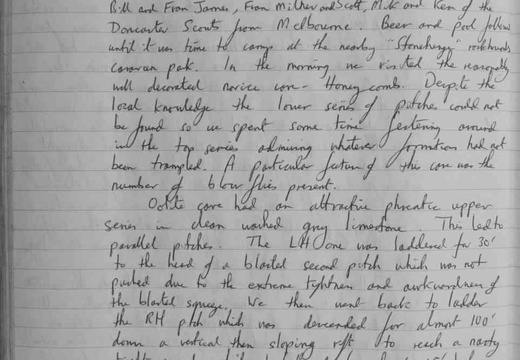 Bill and Fran James, Fran Milner and Scott, Mick and Ken of the
Doncaster Scouts from Melbourne. Beer and pool follows
until it was time to camp at the nearby "Stonehenge"
caravan park. In the morning we visited the reasonably
well decorated novice cave - Honeycomb. Despite the
local knowledge the lower series of pitches could not
be found so we spent some time festering around
in the top series admiring whatever formations had not
been trampled. A particular feature of this cave was the
number of blow flies present.
Oolite cave had an attractive phreatic upper
series in clean washed grey limestone. This led to
parallel pitches. The LH one was laddered for 30'
to the head of a blasted second pitch which was not
pushed due to the extreme tightness and awkwardness of
the blasted squeeze. We then went back to ladder
the RH pitch which was descended for almost 100'
down a vertical then sloping rift to reach a nasty